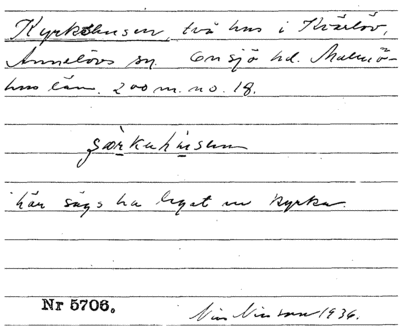 Kyrkohusen, två hus i Kvärlöv,
Annelövs sn. Onsjö hd. Malmö-
hus län. 200 m. no. 18.
här sägs ha legat en kyrka.
Nr 5706.
1936.